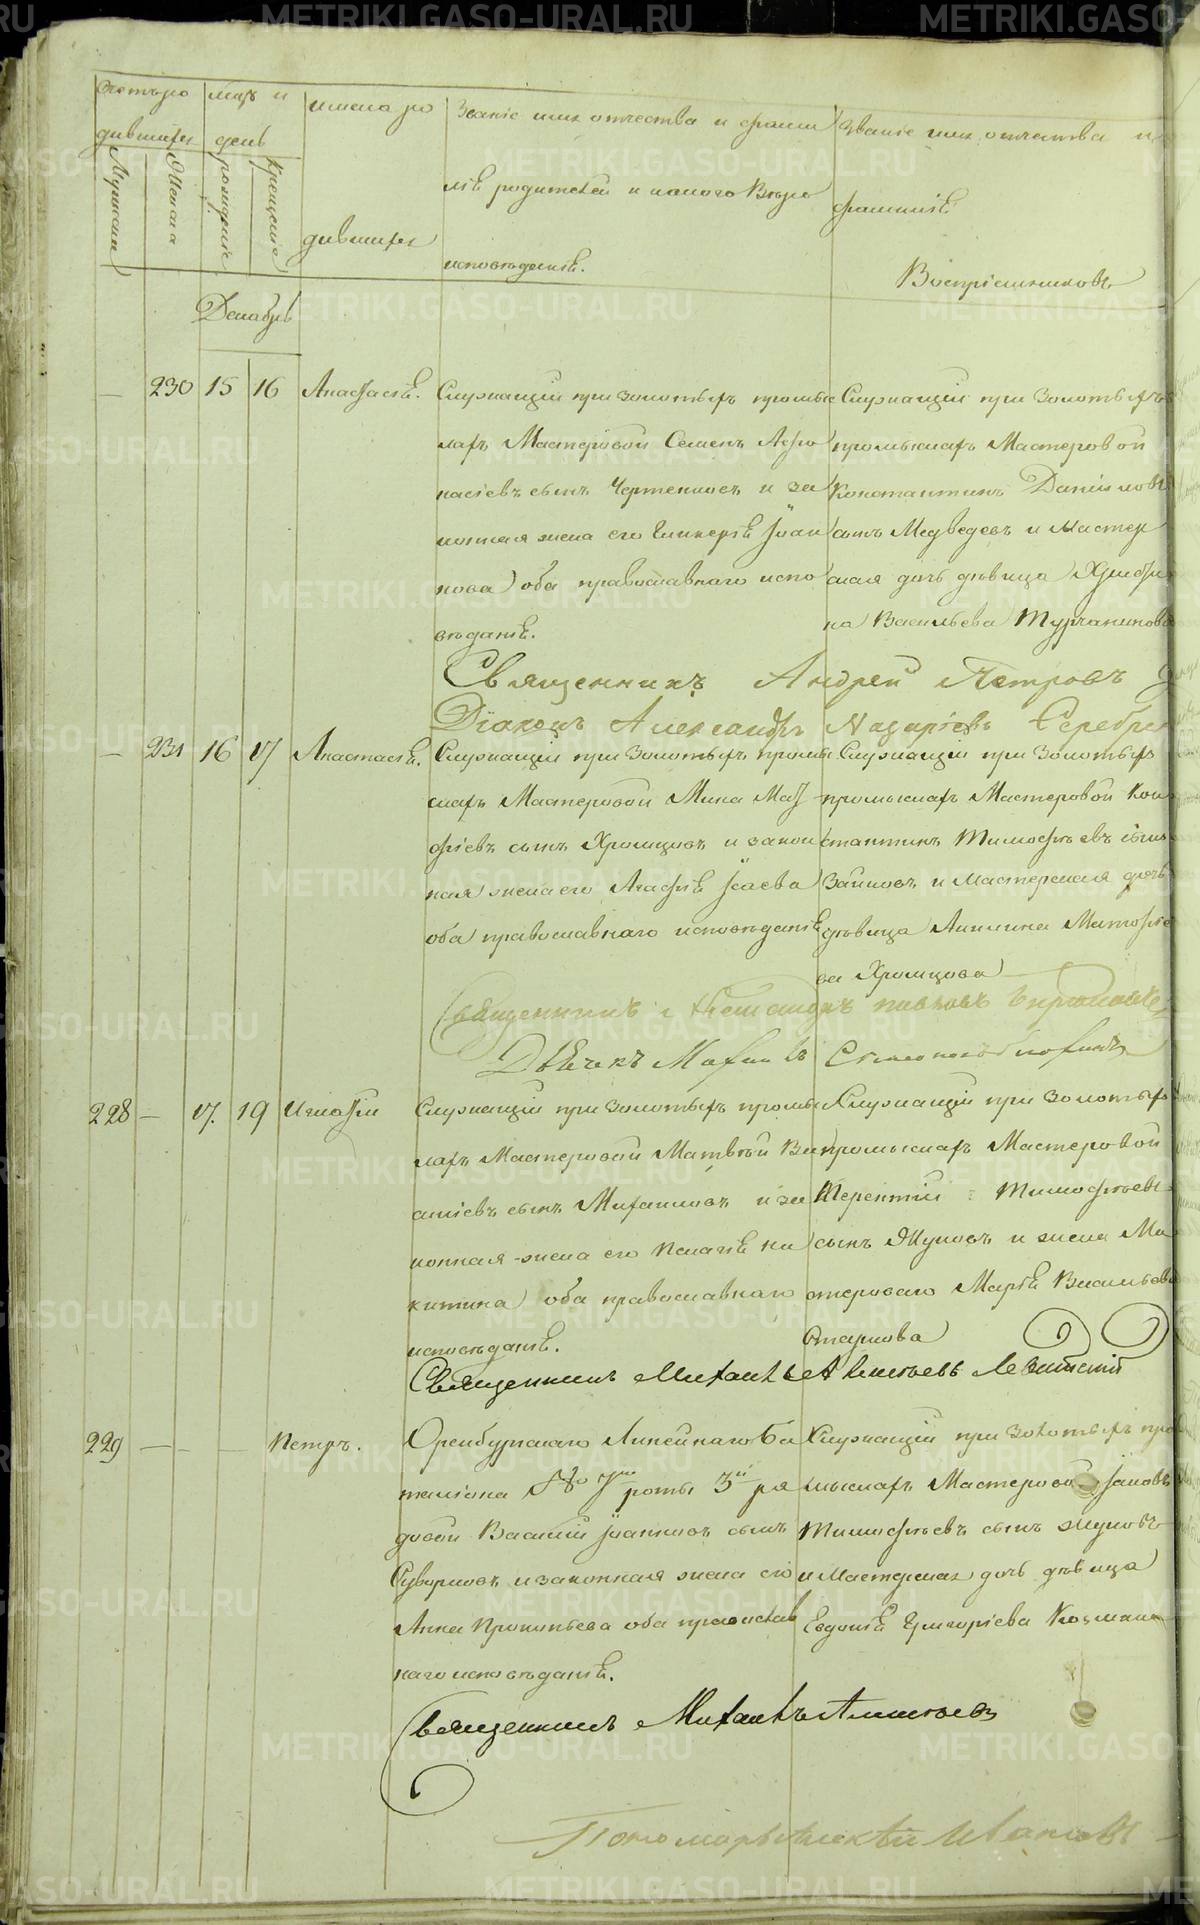 Счетъ ро
дившихся
Мужеска
Женска
Мѣс: и
день
рожденіе
крещеніе
имена ро
дившихся
Званіе имя отчества и фами
ліе родителей и какого Вѣро
исповѣданіе.
Званіе имя отчества и
фамиліе
Воспріемниковъ
Декабрь
— 230 15 16 Анастасіе.
Служащій при золотыхъ промыс
лахъ Мастеровой Семенъ Афо
насіевъ сынъ Чертенковъ и за
конная жена его Гликеріе Іоан
нова оба православнаго испо
вѣданіе.
Служащій при золотыхъ
промыслахъ Мастеровой
Константинъ Даниловъ
сынъ Медведевъ и мастер
ская дочь дѣвица Христи
на Васильева Турчанинова
Священникъ Андрей Петровъ
Діаконъ Александръ Назаріевъ Серебре
— 231 16 17 Анастасіе.
Служащій при золотыхъ промыс
лахъ Мастеровой Мина Мат
фіевъ сынъ Хромцовъ и закон
ная жена его Агафіе Исаева
оба православнаго исповѣданіе
Служащій при золотыхъ
промыслахъ Мастеровой Кон
стантинъ Тимофѣевъ сынъ
Зайковъ и мастерская дочь
дѣвица Акилина Матофіе
ва Хромцова
Священникъ Александръ Павловъ
Дьячекъ Махаилъ
228 — 17. 19 Игнатій
Служащій при золотыхъ промыс
лахъ Мастеровой Матвѣй Ви
сынъ Михаиловъ и за
конная жена его Пелагіе Ни
китина оба православнаго
исповѣданіе.
Служащій при золотыхъ
промыслахъ Мастеровой
Терентій Тимофѣевъ
сынъ Жуковъ и жена Ма
стероваго Маріе Васильева
Старкова
Священникъ Михаилъ Алексѣевъ Левитскій
229 — — — Петръ.
Оренбургскаго Линейнаго Ба
таліона № 7го роты 3й ря
довой Василій Іоанновъ сынъ
Суворковъ и законная жена его
Анна Прокопьева оба православ
наго исповѣданіе.
Служащій при золотыхъ про
мыслахъ Мастеровой Іаковъ
Тимофѣевъ сынъ Жуковъ
и Мастерская дочь дѣвица
Евдокіе Григоріева Козмина
Священникъ Михаилъ Алексѣевъ
Пономарь Алексѣй Ивановъ
METRIKI.GASO-URAL.RU